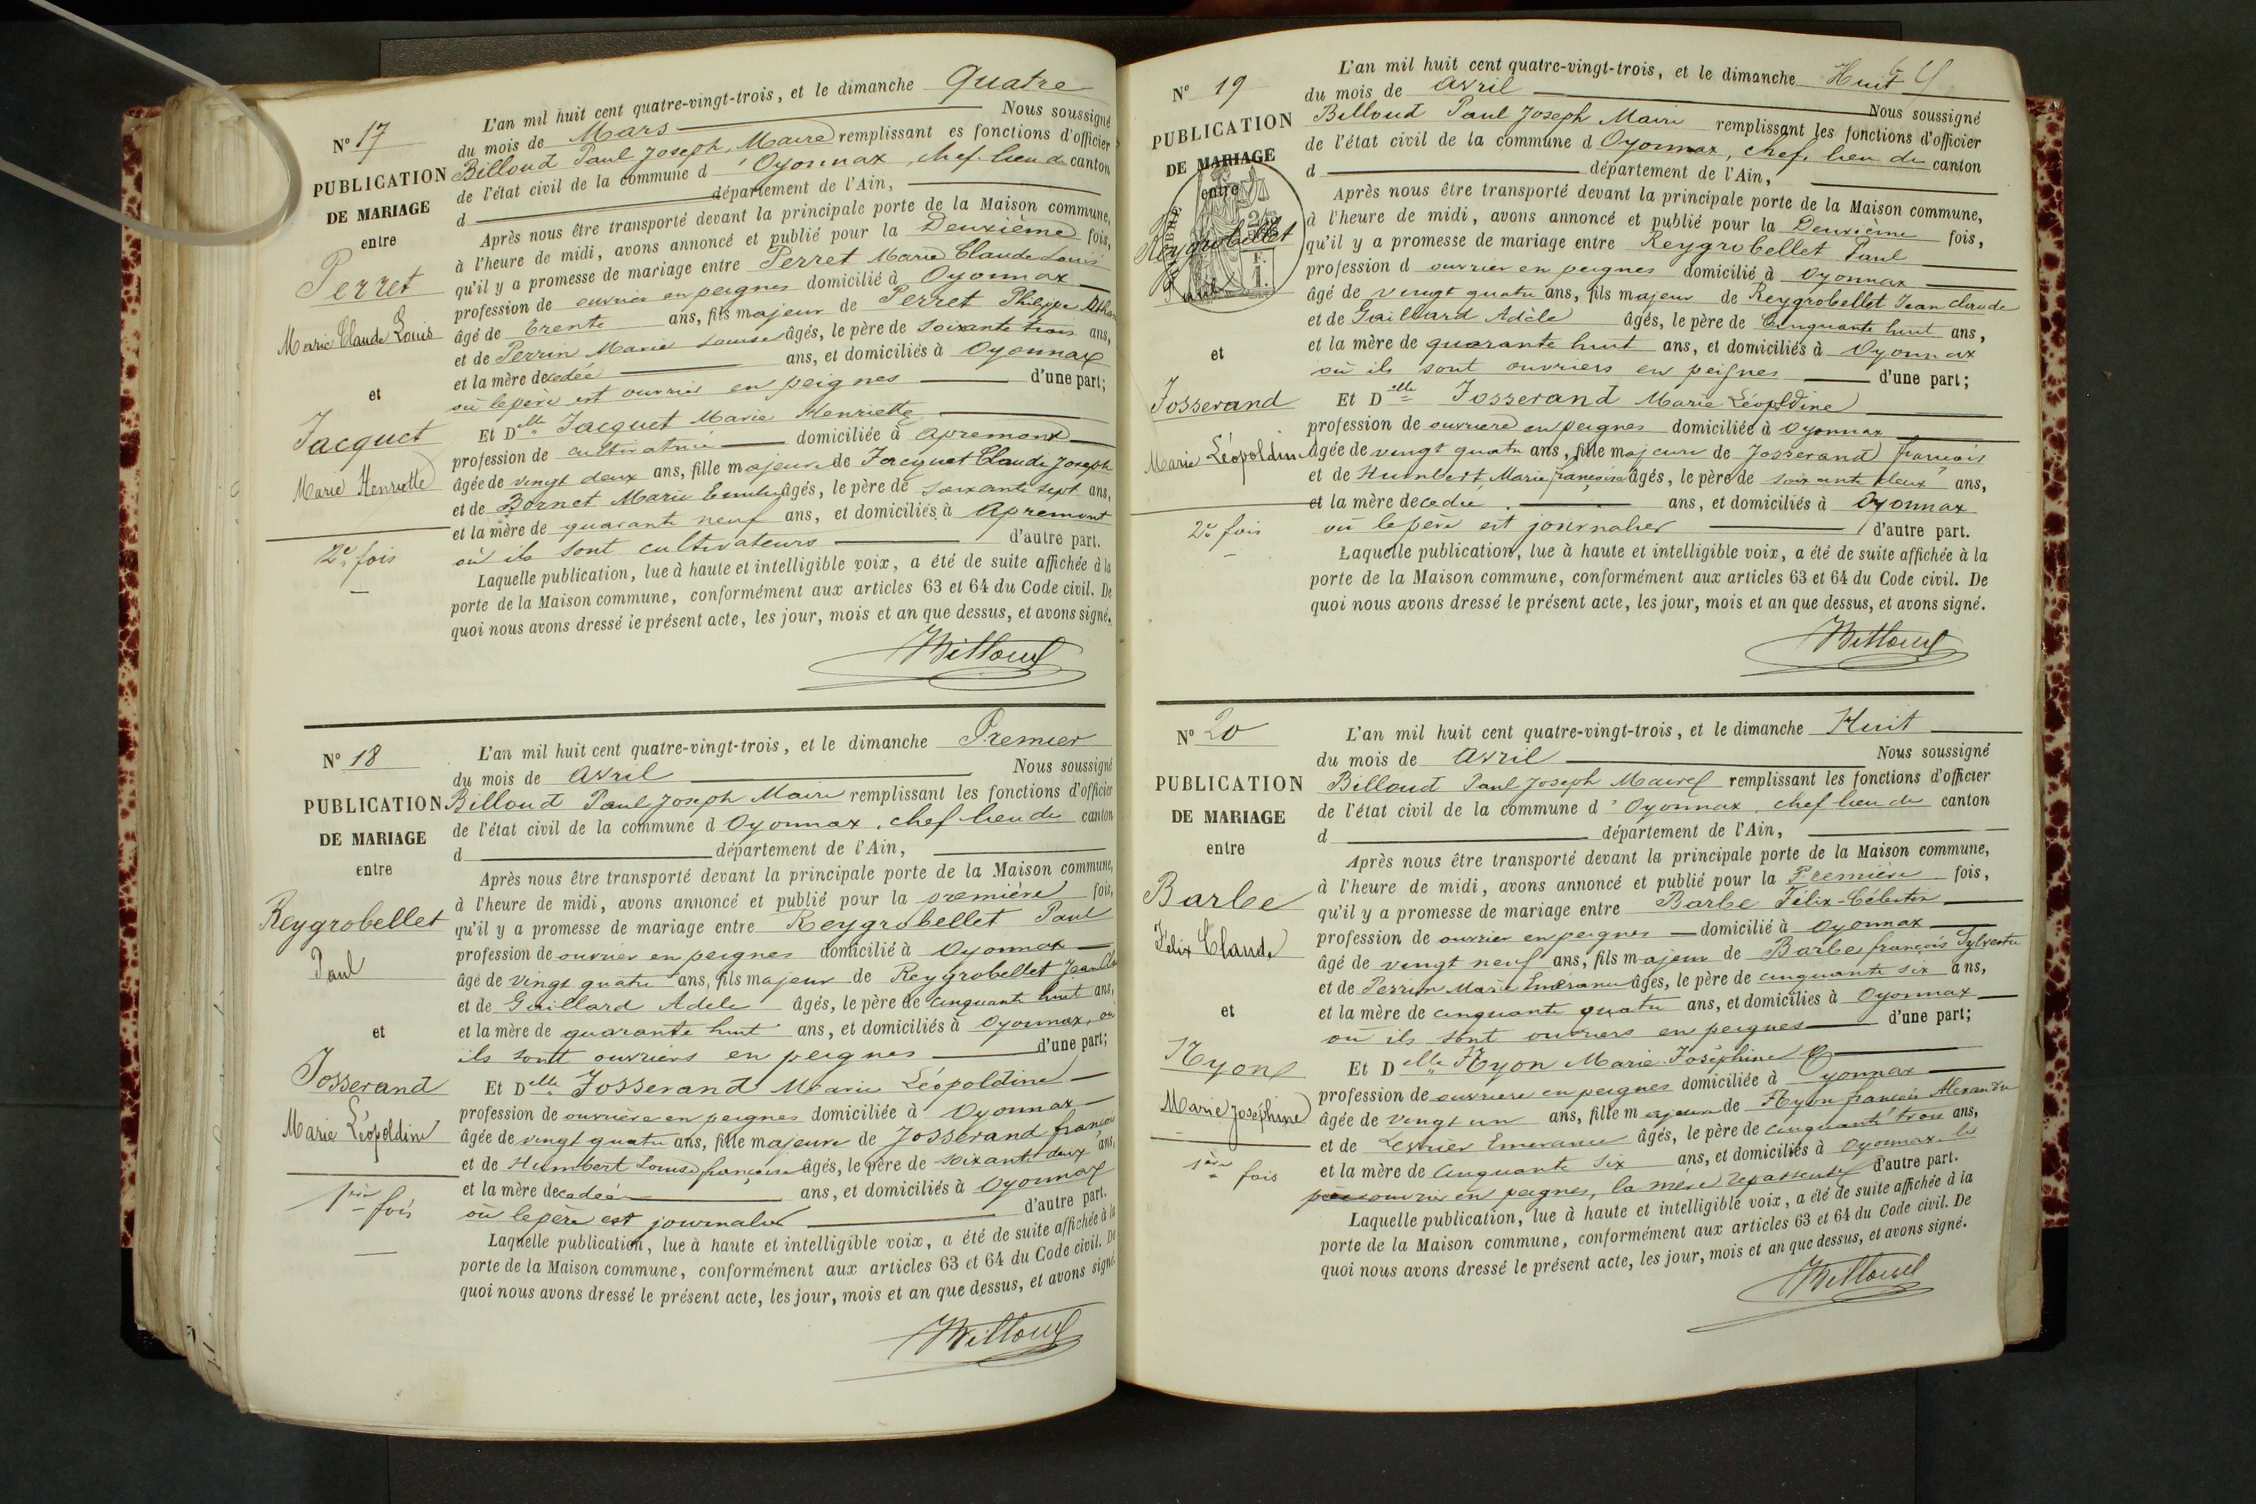 N° 17
PUBLICATION
DE MARIAGE
entre
Perret
Marie Claude Louis
et
Jacquet
Marie Henriette
2e fois
L'an mil huit cent quatre-vingt-trois, et le dimanche Quatre
du mois de Mars Nous soussigné
Billoud Paul Joseph, Maire remplissant es fonctions d'officier
de l'état civil de la commune d'Oyonnax, chef-lieu de canton
d département de l'Ain,
Après nous être transporté devant la principale porte de la Maison commune,
à l'heure de midi, avons annoncé et publié pour la Deuxième fois,
qu'il y a promesse de mariage entre Perret Marie Claude Louis
profession de ouvrier en peignes domicilié à Oyonnax
âgé de trente ans, fils majeur de Perret Philippe
et de Perrin Marie Louise âgés, le père de soixante trois ans,
et la mère decedée ans, et domiciliés à Oyonnax
où le père est ouvrier en peignes d'une part;
Et Delle Jacquet Marie Henriette
profession de cultivatrice domiciliée à Apremont
âgée de vingt deux ans, fille majeure de Jacquet Claude Joseph
et de Bornet Marie Emilie âgés, le père de soixante sept ans,
et la mère de quarante neuf ans, et domiciliés à Apremont
où ils sont cultivateurs d'autre part.
Laquelle publication, lue à haute et intelligible voix, a été de suite affichée à la
porte de la Maison commune, conformément aux articles 63 et 64 du Code civil. De
quoi nous avons dressé le présent acte, les jour, mois et an que dessus, et avons signé.
Billoud
N° 18
PUBLICATION
DE MARIAGE
entre
Reygrobellet
Paul
et
Josserand
Marie Léopoldine
1ère fois
L'an mil huit cent quatre-vingt-trois, et le dimanche Premier
du mois de Avril Nous soussigné
Billoud Paul Joseph Maire remplissant les fonctions d'officier
de l'état civil de la commune d Oyonnax, chef lieu de canton
d département de l'Ain,
Après nous être transporté devant la principale porte de la Maison commune,
à l'heure de midi, avons annoncé et publié pour la première fois,
qu'il y a promesse de mariage entre Reygrobellet Paul
profession de ouvrier en peignes domicilié à Oyonnax
âgé de vingt quatre ans, fils majeur de Reygrobellet Jean Cla
et de Gaillard Adele âgés, le père de cinquante huit ans,
et la mère de quarante huit ans, et domiciliés à Oyonnax, où
ils sont ouvriers en peignes d'une part;
Et Delle Josserand Marie Léopoldine
profession de ouvrière en peignes domiciliée à Oyonnax
âgée de vingt quatre ans, fille majeure de Josserand françois
et de Humbert Louise françoise âgés, le père de soixante deux ans,
et la mère decedée ans, et domiciliés à Oyonnax
où le père est journalier d'autre part.
Laquelle publication, lue à haute et intelligible voix, a été de suite affichée à la
porte de la Maison commune, conformément aux articles 63 et 64 du Code civil. De
quoi nous avons dressé le présent acte, les jour, mois et an que dessus, et avons signé.
Billoud
N° 19
PUBLICATION
DE MARIAGE
entre
Reygrobellet
Paul
et
Josserand
Marie Léopoldine
2e fois
L'an mil huit cent quatre-vingt-trois, et le dimanche Huit
du mois de Avril Nous soussigné
Billoud Paul Joseph Maire remplissant les fonctions d'officier
de l'état civil de la commune d Oyonnax, chef, lieu de canton
d département de l'Ain,
Après nous être transporté devant la principale porte de la Maison commune,
à l'heure de midi, avons annoncé et publié pour la Deuxième fois,
qu'il y a promesse de mariage entre Reygrobellet Paul
profession d ouvrier en peignes domicilié à Oyonnax
âgé de vingt quatre ans, fils majeur de Reygrobellet Jean claude
et de Gaillard Adèle âgés, le père de Cinquante huit ans,
et la mère de quarante huit ans, et domiciliés à Oyonnax
où ils sont ouvriers en peignes d'une part;
Et Delle Josserand Marie Léopoldine
profession de ouvrière en peignes domiciliée à Oyonnax
âgée de vingt quatre ans, fille majeure de Josserand françois
et de Humbert Marie françoise âgés, le père de soixante deux ans,
et la mère decedée ans, et domiciliés à Oyonnax
où le père est journalier d'autre part.
Laquelle publication, lue à haute et intelligible voix, a été de suite affichée à la
porte de la Maison commune, conformément aux articles 63 et 64 du Code civil. De
quoi nous avons dressé le présent acte, les jour, mois et an que dessus, et avons signé.
Billoud
N° 20
PUBLICATION
DE MARIAGE
entre
Barbe
Félix Claude
et
Hyon
Marie Joséphine
1ère fois
L'an mil huit cent quatre-vingt-trois, et le dimanche Huit
du mois de Avril Nous soussigné
Billoud Paul Joseph Maire remplissant les fonctions d'officier
de l'état civil de la commune d'Oyonnax, chef lieu de canton
d département de l'Ain,
Après nous être transporté devant la principale porte de la Maison commune,
à l'heure de midi, avons annoncé et publié pour la Première fois,
qu'il y a promesse de mariage entre Barbe Félix-Célestin
profession de ouvrier en peignes domicilié à Oyonnax
âgé de vingt neuf ans, fils majeur de Barbe françois Sylvestre
et de Perrin Marie Emérance âgés, le père de cinquante six ans,
et la mère de cinquante quatre ans, et domiciliés à Oyonnax
où ils sont ouvriers en peignes d'une part;
Et Delle Hyon Marie Joséphine
profession de ouvrière en peignes domiciliée à Oyonnax
âgée de vingt un ans, fille majeure de Hyon françois Alexandre
et de Emerance âgés, le père de cinquante trois ans,
et la mère de Cinquante six ans, et domiciliés à Oyonnax le
père ouvrier en peignes, la mère repasseuse d'autre part.
Laquelle publication, lue à haute et intelligible voix, a été de suite affichée à la
porte de la Maison commune, conformément aux articles 63 et 64 du Code civil. De
quoi nous avons dressé le présent acte, les jour, mois et an que dessus, et avons signé.
Billoud